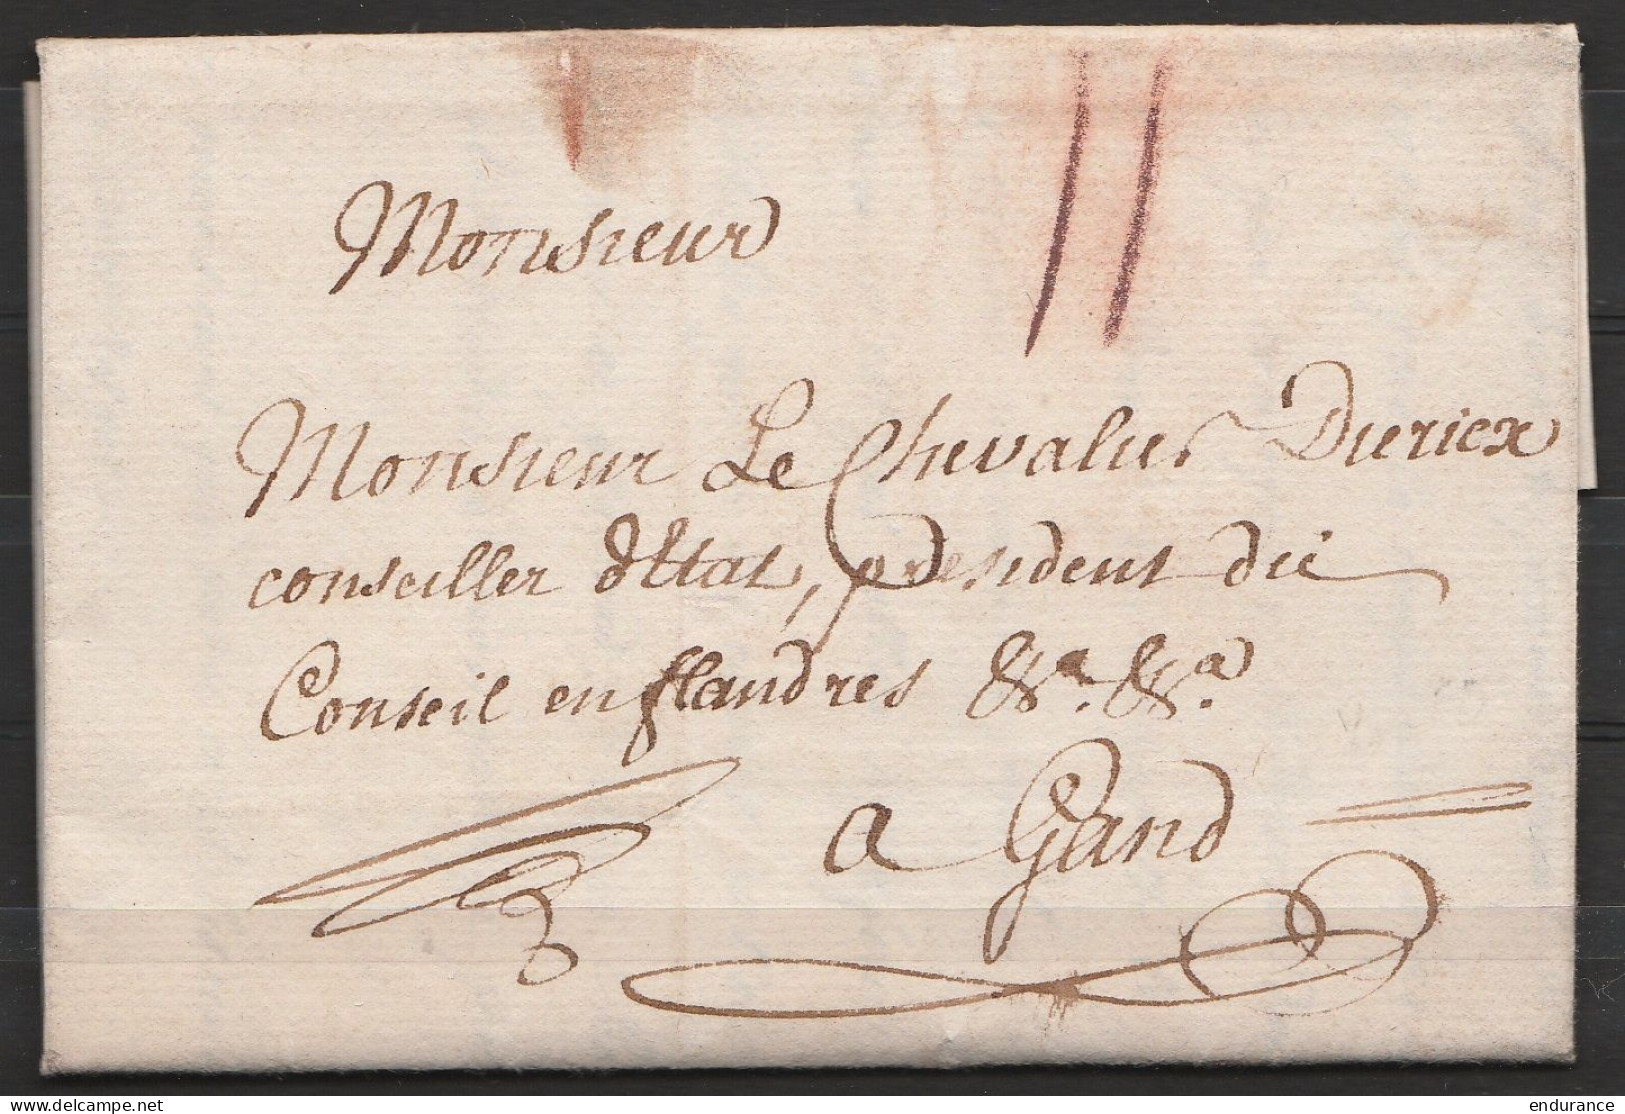 Monsieur
Monsieur Le Chevalier Diericx
conseiller d'Etat, president du
Conseil en flandres &a. &a.
a Gand
www.delcampe.net
endurance